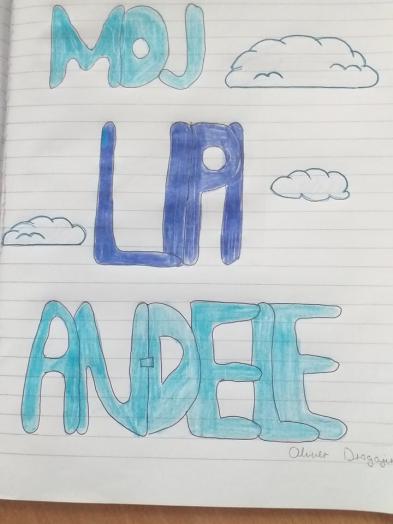 MOJ
LIPI
ANĐELE
Oliver